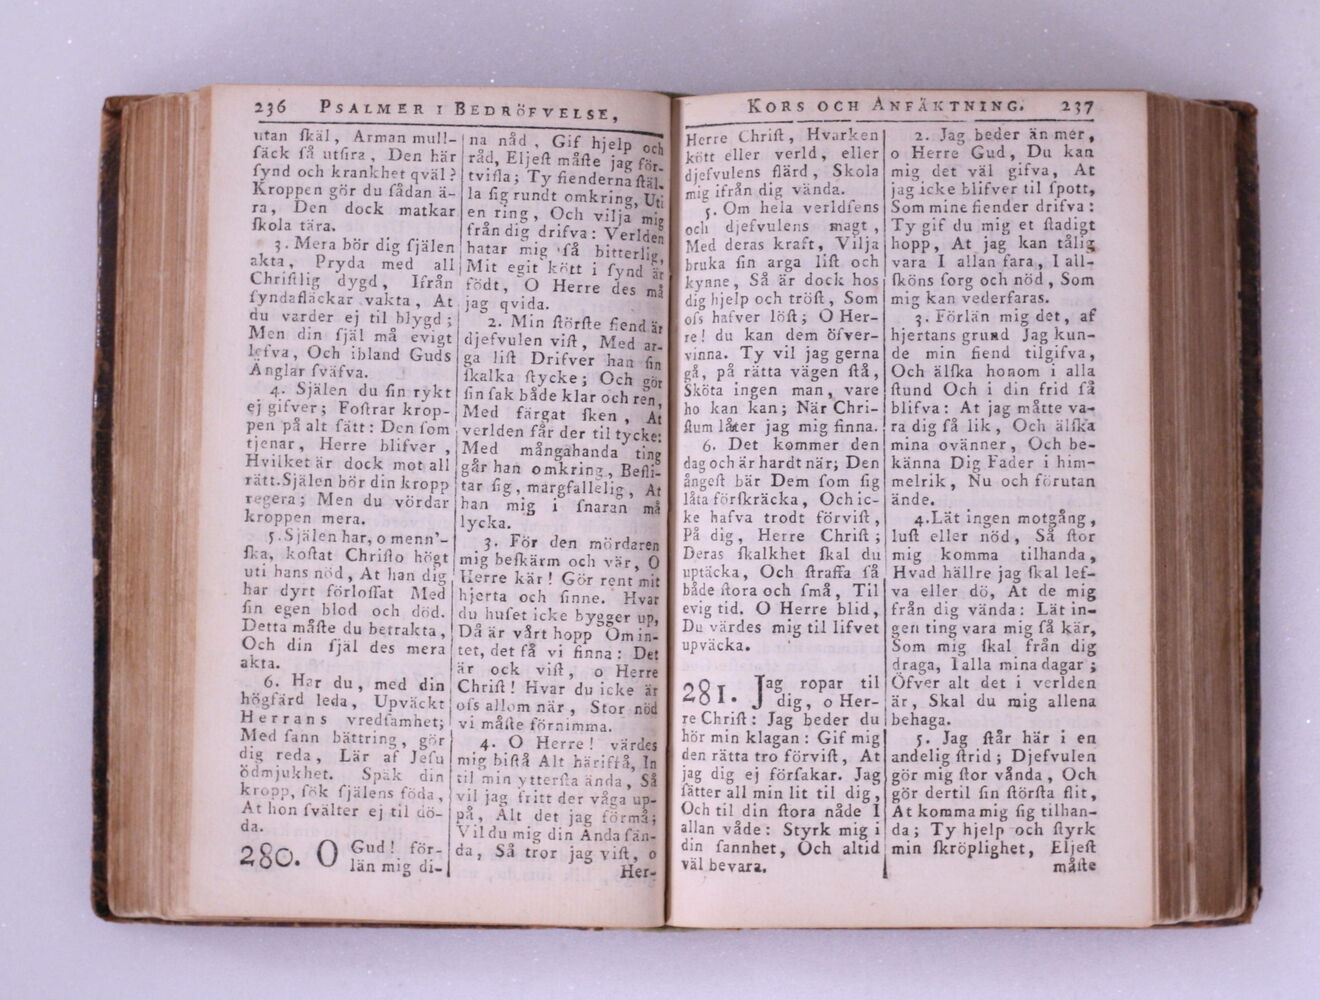 236 PSALMER I BEDRÖFVELSE,
utan ſkäl, Arman mull-
ſäck ſå utſira, Den här
ſynd och krankhet qväl?
Kroppen gör du ſådan ä-
ra, Den dock matkar
ſkola tära.
3. Mera bör dig ſjälen
akta, Pryda med all
Chriſtlig dygd, Ifrån
ſyndafläckar vakta, At
du varder ej til blygd;
Men din ſjäl må evigt
lefva, Och ibland Guds
Änglar ſväfva.
4. Själen du ſin rykt
ej gifver; Foſtrar krop-
pen på alt ſätt: Den ſom
tjenar, Herre blifver,
Hvilket är dock mot all
rätt. Själen bör din kropp
regera; Men du vördar
kroppen mera.
5. Själen har, o menn'-
ſka, koſtat Chriſto högt
uti hans nöd, At han dig
har dyrt förloſſat Med
ſin egen blod och död.
Detta måſte du betrakta,
Och din ſjäl des mera
akta.
6. Har du, med din
högfärd leda, Upväckt
Herrans vredſamhet;
Med ſann bättring, gör
dig reda, Lär af Jeſu
ödmjukhet. Späk din
kropp, ſök ſjälens föda,
At hon ſvälter ej til dö-
da.
280. O Gud! för-
län mig di-
na nåd, Gif hjelp och
råd, Eljeſt måſte jag för-
tvifla; Ty fienderna ſtäl-
la ſig rundt omkring, Uti
en ring, Och vilja mig
från dig drifva: Verlden
hatar mig ſå bitterlig,
Mit egit kött i ſynd är
födt, O Herre des må
jag qvida.
2. Min ſtörſte fiend är
djefvulen viſt, Med ar-
ga liſt Drifver han ſin
ſkalka ſtycke; Och gör
ſin ſak både klar och ren,
Med färgat ſken, At
verlden får der til tycke:
Med mångahanda ting
går han omkring, Befli-
tar ſig, margfallelig, At
han mig i ſnaran må
lycka.
3. För den mördaren
mig beſkärm och vär, O
Herre kär! Gör rent mit
hjerta och ſinne. Hvar
du huſet icke bygger up,
Då är vårt hopp Om in-
tet, det få vi finna: Det
är ock viſt, o Herre
Chriſt! Hvar du icke är
oſs allom när, Stor nöd
vi måſte förnimma.
4. O Herre! värdes
mig biſtå Alt härifrå, In
til min ytterſta ända, Så
vil jag fritt der våga up-
på, Alt det jag förmå;
Vil du mig din Anda ſän-
da, Så tror jag viſt, o
Her-
KORS OCH ANFÄKTNING. 237
Herre Chriſt, Hvarken
kött eller verld, eller
djefvulens flärd, Skola
mig ifrån dig vända.
5. Om hela verldſens
och djefvulens magt,
Med deras kraft, Vilja
bruka ſin arga liſt och
kynne, Så är dock hos
dig hjelp och tröſt, Som
oſs hafver löſt; O Her-
re! du kan dem öfver-
vinna. Ty vil jag gerna
gå, på rätta vägen ſtå,
Sköta ingen man, vare
ho kan kan; När Chri-
ſtum låter jag mig finna.
6. Det kommer den
dag och är hardt när; Den
ångeſt bär Dem ſom ſig
låta förſkräcka, Och ic-
ke hafva trodt förviſt,
På dig, Herre Chriſt;
Deras ſkalkhet ſkal du
uptäcka, Och ſtraffa ſå
både ſtora och ſmå, Til
evig tid. O Herre blid,
Du värdes mig til lifvet
upväcka.
281. Jag ropar til
dig, o Her-
re Chriſt: Jag beder du
hör min klagan: Gif mig
den rätta tro förviſt, At
jag dig ej förſakar. Jag
ſätter all min lit til dig,
Och til din ſtora nåde I
allan våde: Styrk mig i
din ſannhet, Och altid
väl bevara.
2. Jag beder än mer,
o Herre Gud, Du kan
mig det väl gifva, At
jag icke blifver til ſpott,
Som mine fiender drifva:
Ty gif du mig et ſtadigt
hopp, At jag kan tålig
vara I allan fara, I all-
ſköns ſorg och nöd, Som
mig kan vederfaras.
3. Förlän mig det, af
hjertans grund Jag kun-
de min fiend tilgifva,
Och älſka honom i alla
ſtund Och i din frid få
blifva: At jag måtte va-
ra dig ſå lik, Och älſka
mina ovänner, Och be-
känna Dig Fader i him-
melrik, Nu och förutan
ände.
4. Lät ingen motgång,
luſt eller nöd, Så ſtor
mig komma tilhanda,
Hvad hällre jag ſkal lef-
va eller dö, At de mig
från dig vända: Lät in-
gen ting vara mig ſå kär,
Som mig ſkal från dig
draga, I alla mina dagar;
Öfver alt det i verlden
är, Skal du mig allena
behaga.
5. Jag ſtår här i en
andelig ſtrid; Djefvulen
gör mig ſtor vånda, Och
gör dertil ſin ſtörſta flit,
At komma mig ſig tilhan-
da; Ty hjelp och ſtyrk
min ſkröplighet, Eljeſt
måſte